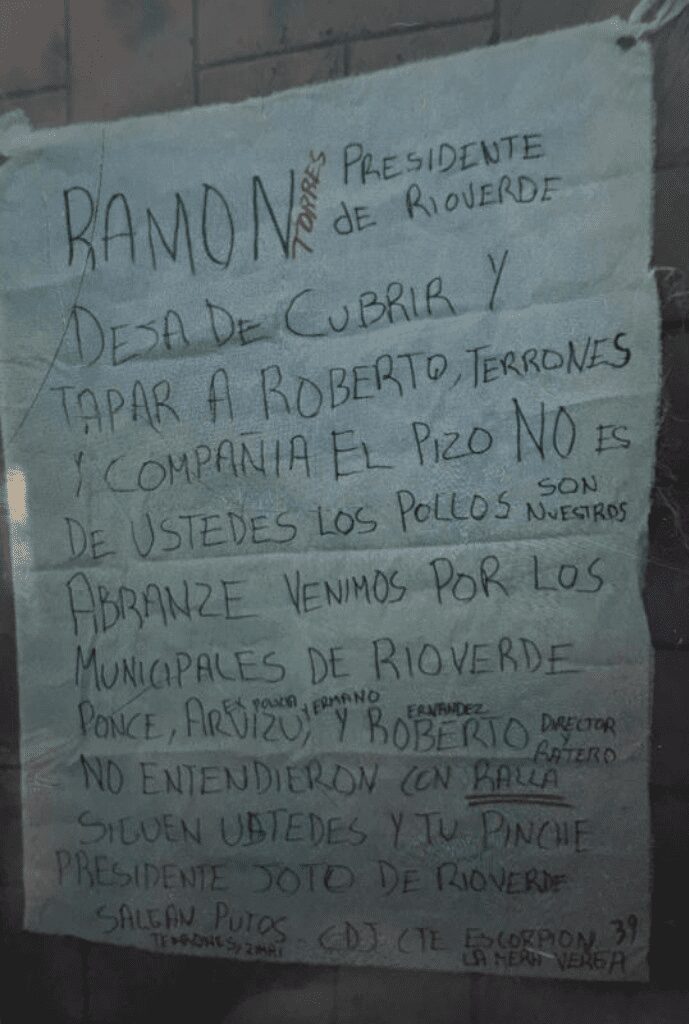 RAMON TORRES PRESIDENTE
DE RIOVERDE
DEJA DE CUBRIR Y
TAPAR A ROBERTO, TERRONES
Y COMPAÑIA EL PIZO NO ES
DE USTEDES LOS POLLOS SON NUESTROS
ABRANZE VENIMOS POR LOS
MUNICIPALES DE RIOVERDE
EX POLICIA Y ERMANO ERNANDEZ
PONCE, ARVIZU, Y ROBERTO DIRECTOR Y RATERO
NO ENTENDIERON CON RALLA
SIGUEN USTEDES Y TU PINCHE
PRESIDENTE JOTO DE RIOVERDE
SALGAN PUTOS
TERRONES CDJ CTE ESCORPION 39
LA MERA VERGA